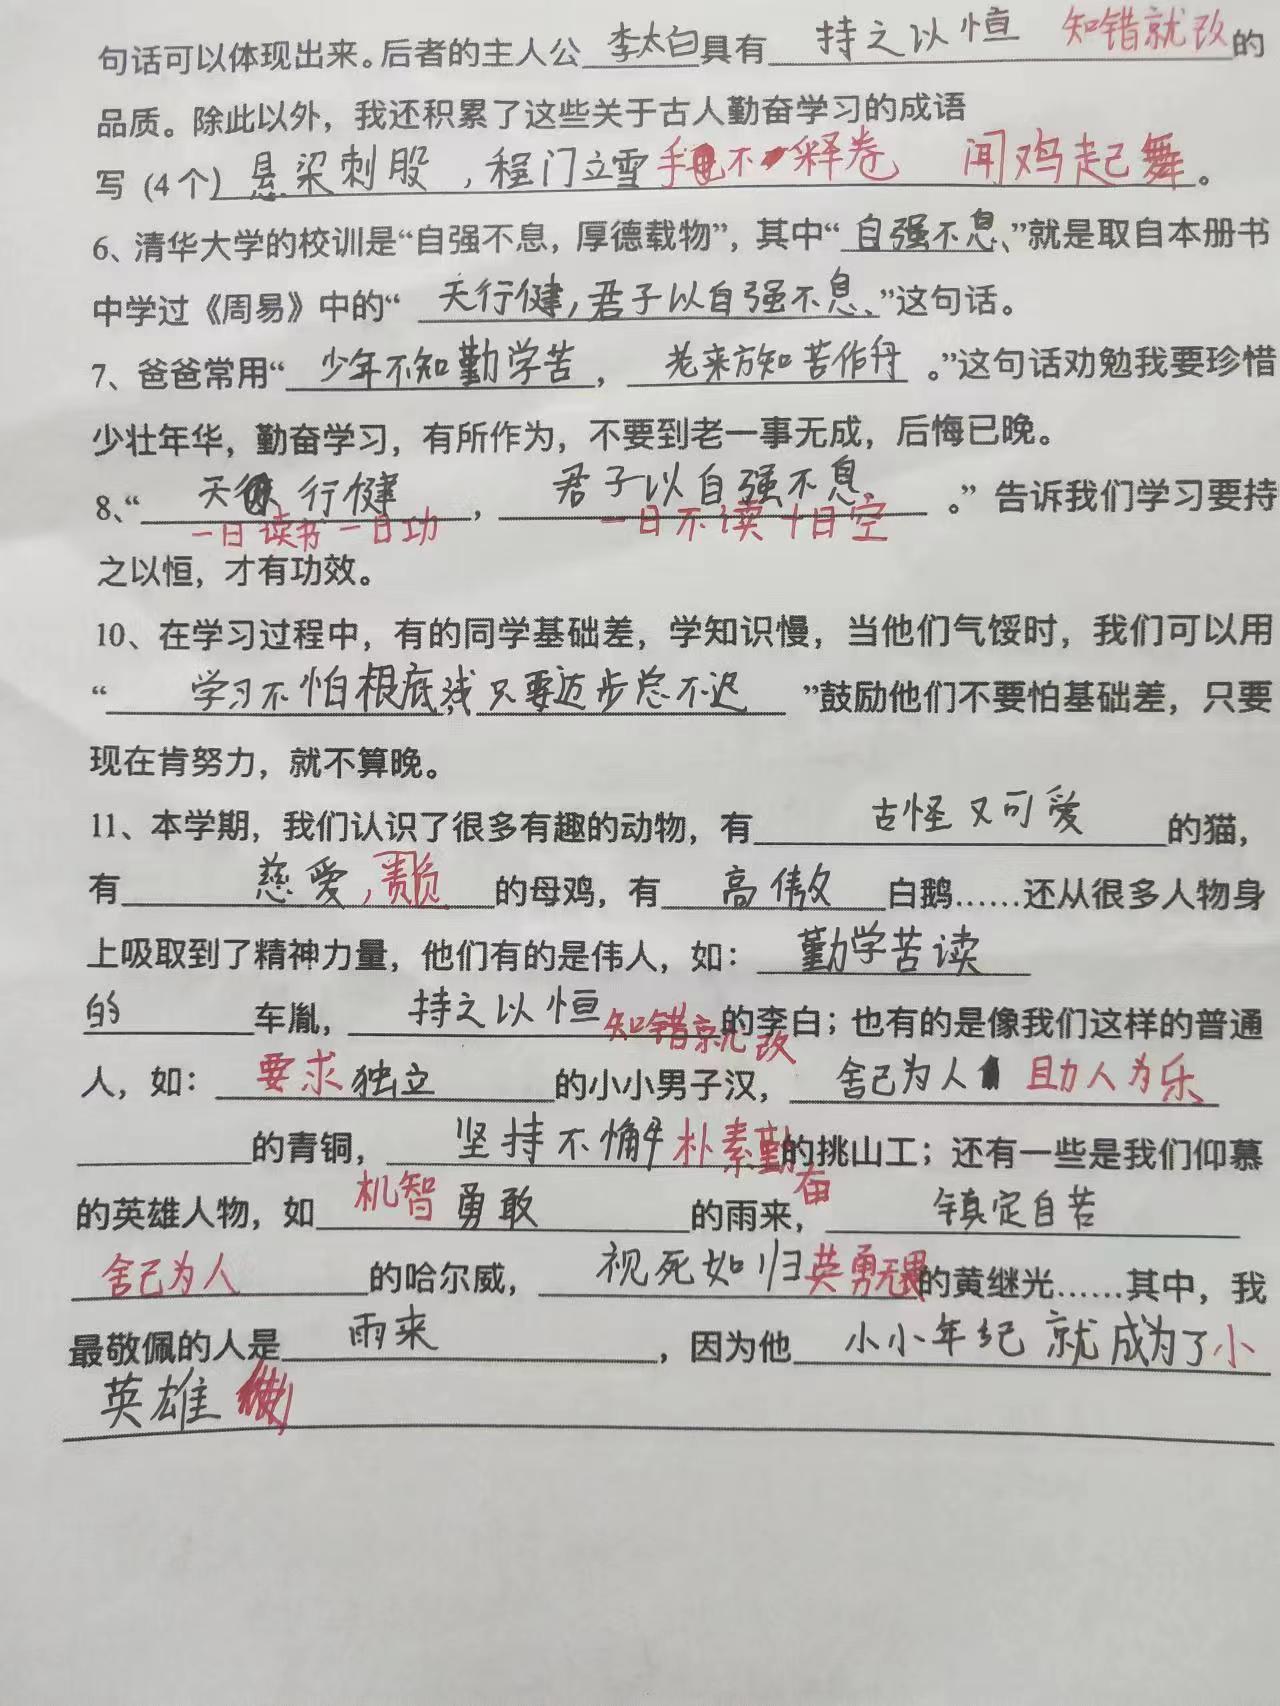 句话可以体现出来。后者的主人公李太白具有持之以恒 知错就改的
品质。除此以外，我还积累了这些关于古人勤奋学习的成语
写（4个）悬梁刺股，程门立雪手不释卷 闻鸡起舞。
6、清华大学的校训是“自强不息，厚德载物”，其中“自强不息、”就是取自本册书
中学过《周易》中的“天行健，君子以自强不息、”这句话。
7、爸爸常用“少年不知勤学苦，老来方知苦作舟。”这句话劝勉我要珍惜
少壮年华，勤奋学习，有所作为，不要到老一事无成，后悔已晚。
8、“天行健，君子以自强不息、。”告诉我们学习要持
一日读书一日功 一日不读十日空
之以恒，才有功效。
10、在学习过程中，有的同学基础差，学知识慢，当他们气馁时，我们可以用
“学习不怕根底浅只要迈步总不迟”鼓励他们不要怕基础差，只要
现在肯努力，就不算晚。
11、本学期，我们认识了很多有趣的动物，有古怪又可爱的猫，
有慈爱，负责的母鸡，有高傲白鹅……还从很多人物身
上吸取到了精神力量，他们有的是伟人，如：勤学苦读
的车胤，持之以恒知错就改的李白；也有的是像我们这样的普通
人，如：要求独立的小小男子汉，舍己为人 助人为乐
的青铜，坚持不懈朴素勤奋的挑山工；还有一些是我们仰慕
的英雄人物，如机智勇敢的雨来，镇定自若
舍己为人的哈尔威，视死如归英勇无畏的黄继光……其中，我
最敬佩的人是雨来，因为他小小年纪就成为了小
英雄